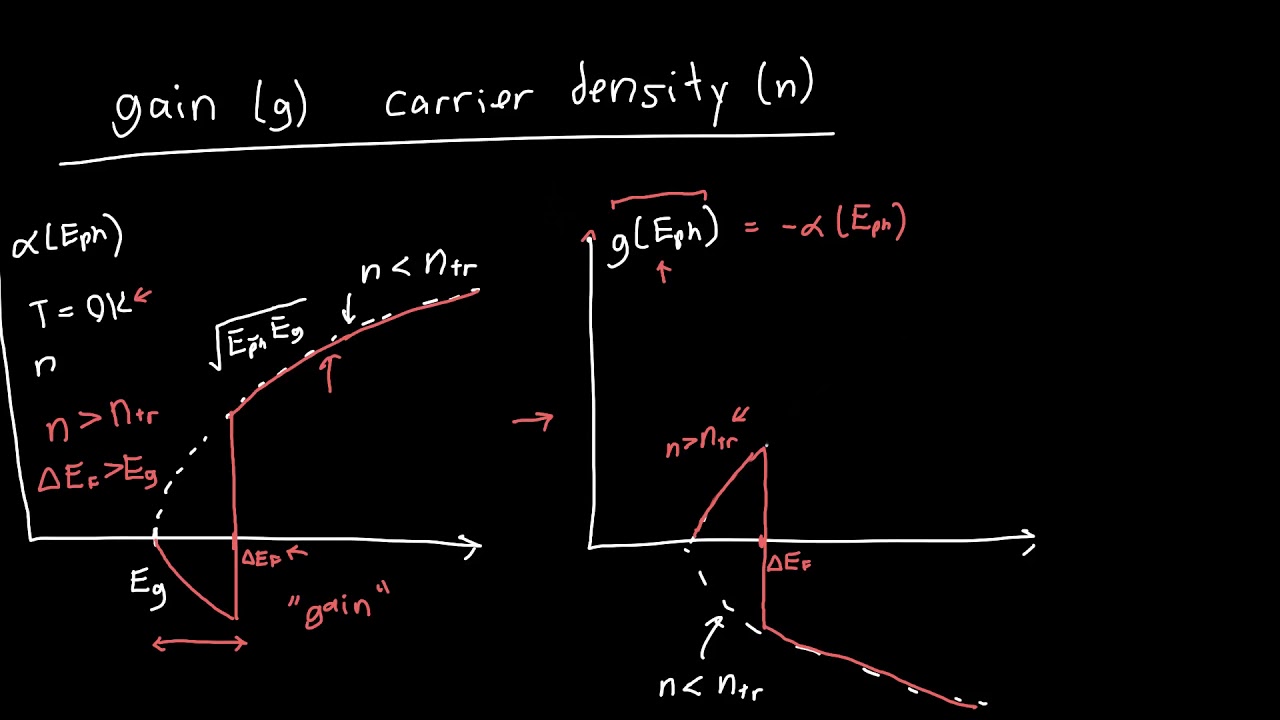 gain (g) carrier density (n)
α(Eph)
T = 0K
n
n > ntr
ΔEF > Eg
√Eph-Eg
n < ntr
Eg
ΔEF
"gain"
g(Eph) = -α(Eph)
n>ntr
ΔEF
n < ntr